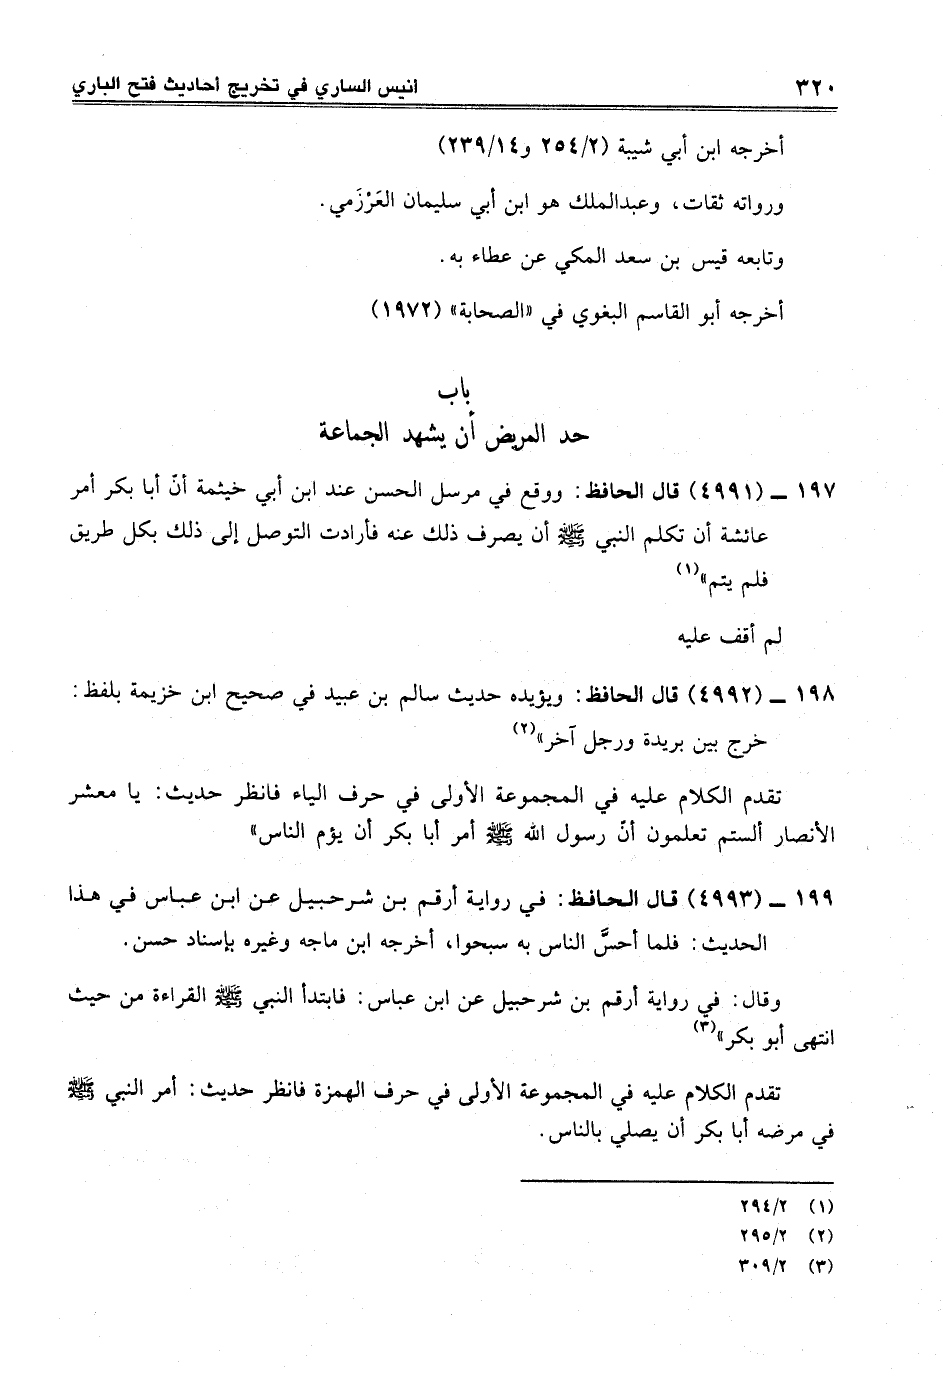 ٣٢٠ أنيس الساري في تخريج أحاديث فتح الباري
أخرجه ابن أبي شيبة (٢/ ٢٥٤ و١٤/ ٢٣٩)
ورواته ثقات، وعبدالملك هو ابن أبي سليمان العَرْزَمي.
وتابعه قيس بن سعد المكي عن عطاء به.
أخرجه أبو القاسم البغوي في «الصحابة» (١٩٧٢)
باب
حد المريض أن يشهد الجماعة
١٩٧ ـ (٤٩٩١) قال الحافظ: ووقع في مرسل الحسن عند ابن أبي خيثمة أنّ أبا بكر أمر
عائشة أن تكلم النبي ﷺ أن يصرف ذلك عنه فأرادت التوصل إلى ذلك بكل طريق
فلم يتم»(١)
لم أقف عليه
١٩٨ ـ (٤٩٩٢) قال الحافظ: ويؤيده حديث سالم بن عبيد في صحيح ابن خزيمة بلفظ:
خرج بين بريدة ورجل آخر»(٢)
تقدم الكلام عليه في المجموعة الأولى في حرف الياء فانظر حديث: يا معشر
الأنصار ألستم تعلمون أنّ رسول الله ﷺ أمر أبا بكر أن يؤم الناس»
١٩٩ ـ (٤٩٩٣) قال الحافظ: في رواية أرقم بن شرحبيل عن ابن عباس في هذا
الحديث: فلما أحسَّ الناس به سبحوا، أخرجه ابن ماجه وغيره بإسناد حسن.
وقال: في رواية أرقم بن شرحبيل عن ابن عباس: فابتدأ النبي ﷺ القراءة من حيث
انتهى أبو بكر»(٣)
تقدم الكلام عليه في المجموعة الأولى في حرف الهمزة فانظر حديث: أمر النبي ﷺ
في مرضه أبا بكر أن يصلي بالناس.
(١) ٢/ ٢٩٤
(٢) ٢/ ٢٩٥
(٣) ٢/ ٣٠٩